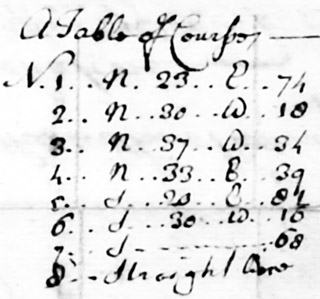 A Table of Courses
N. 1.. N. 23.. E. 74
2.. N.. 30.. W. 18
3.. N.. 37.. W. 34
4.. N.. 33.. E. 39
5.. S.. 20.. E. 84
6.. S.. 30.. W. 16
7.. S 68
8.. Straight